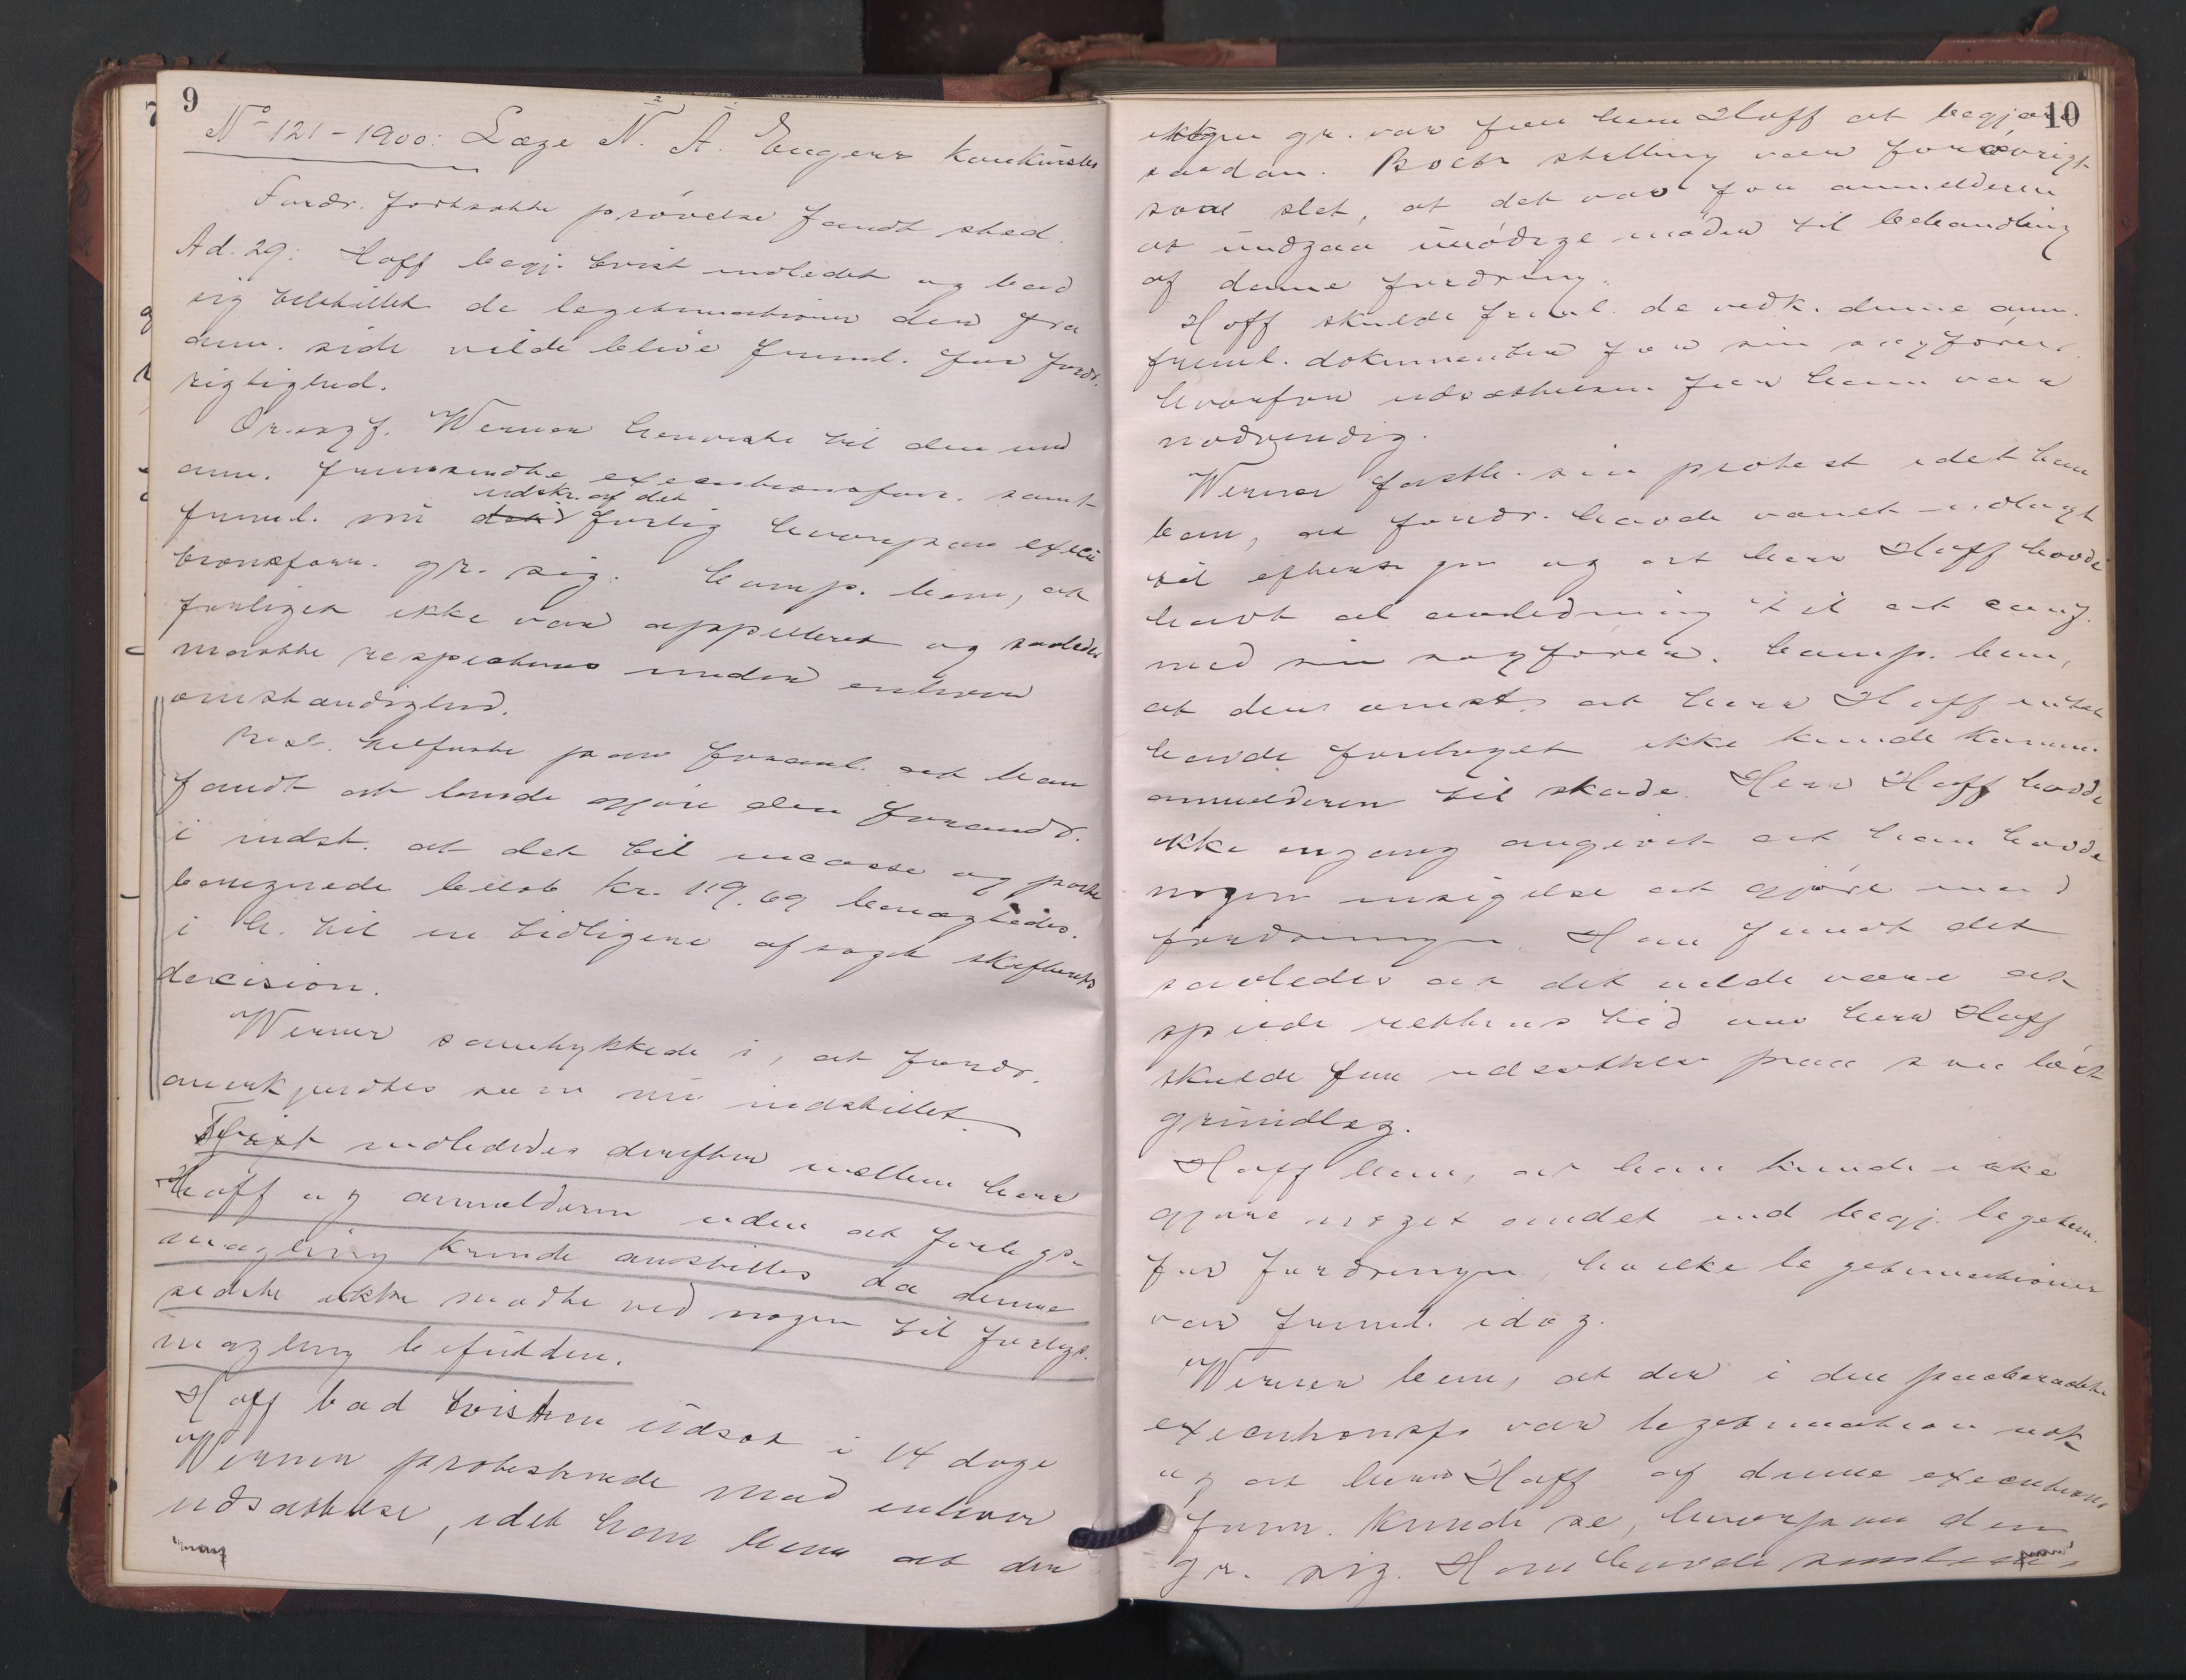 9
No 121-1900: Læge N. A. Engers konkursbo
Fordr. fortsatte prøvelse fandt sted.
Ad. 29: Hoff begj. tvist indledet og bad
sig tilstillet de legitimationer der fra
anm. side vilde blive freml. for fordr.
rigtighed.
Or.sagf. Werner henviste til den med
anm. fremsendte executionsforr. samt
udskr. af det
freml. nu forlig hvorpaa execu
tionsforr. gr. sig. Comp. bem, at
forliget ikke var appelleret og saaledes
maatte respecteres under enhver
omstændighed.
Best. tilførte paa foranl. at han
fandt at burde gjøre den forandr.
i indst. at det til incasso og porto
beregnede beløb kr. 119.69 benægtedes.
i h. til en tidligere afsagt skifterets
decision.
Werner samtykkede i, at fordr.
anerkjendtes som nu indstillet.
Tvist indlededes derefter mellem herr
Hoff og anmelderen uden at forligs-
mægling kunde anstilles da denne
sidste ikke mødte ved nogen til forligs-
mægling befuldm.
Hoff bad tvisten udsat i 14 dage
Werner protesterede mod enhver
udsættelse, idet han bem at der
10
ingen gr. var for herr Hoff at begjære
saadan. Boets stilling var forøvrigt
saa slet, at det var for anmelderen
at undgaa unødige møder til behandling
af denne fordring.
Hoff skulde freml. de vedk. denne anm.
freml. dokumenter for sin sagfører
hvorfor udsættelsen for ham var
nødvendig.
Werner fastth. sin protest idet han
bem, at fordr. havde været udlagt
til eftersyn og at herr Hoff havde
havt al anledning til at conf.
med sin sagfører. Comp. bem,
at den omst. at herr Hoff intet
havde foretaget ikke kunde komme
anmelderen til skade. Herr Hoff havde
ikke engang angivet at han havde
nogen insigelse at gjøre mod
fordringen. Han fandt det
saaledes at det vilde være at
spilde rettens tid om herr Hoff
skulde faa udsættelse paa saa løst
grundlag.
Hoff bem, at han kunde ikke
gjøre noget andet end begj. legitim.
for fordringen, hvilke legitimationer
var freml. idag.
Werner bem, at der i den paaberaabte
executionsf. var legitimation nok
og at herr Hoff af denne executions
forr. kunde se, hvorpaa den
gr. sig. Han havde